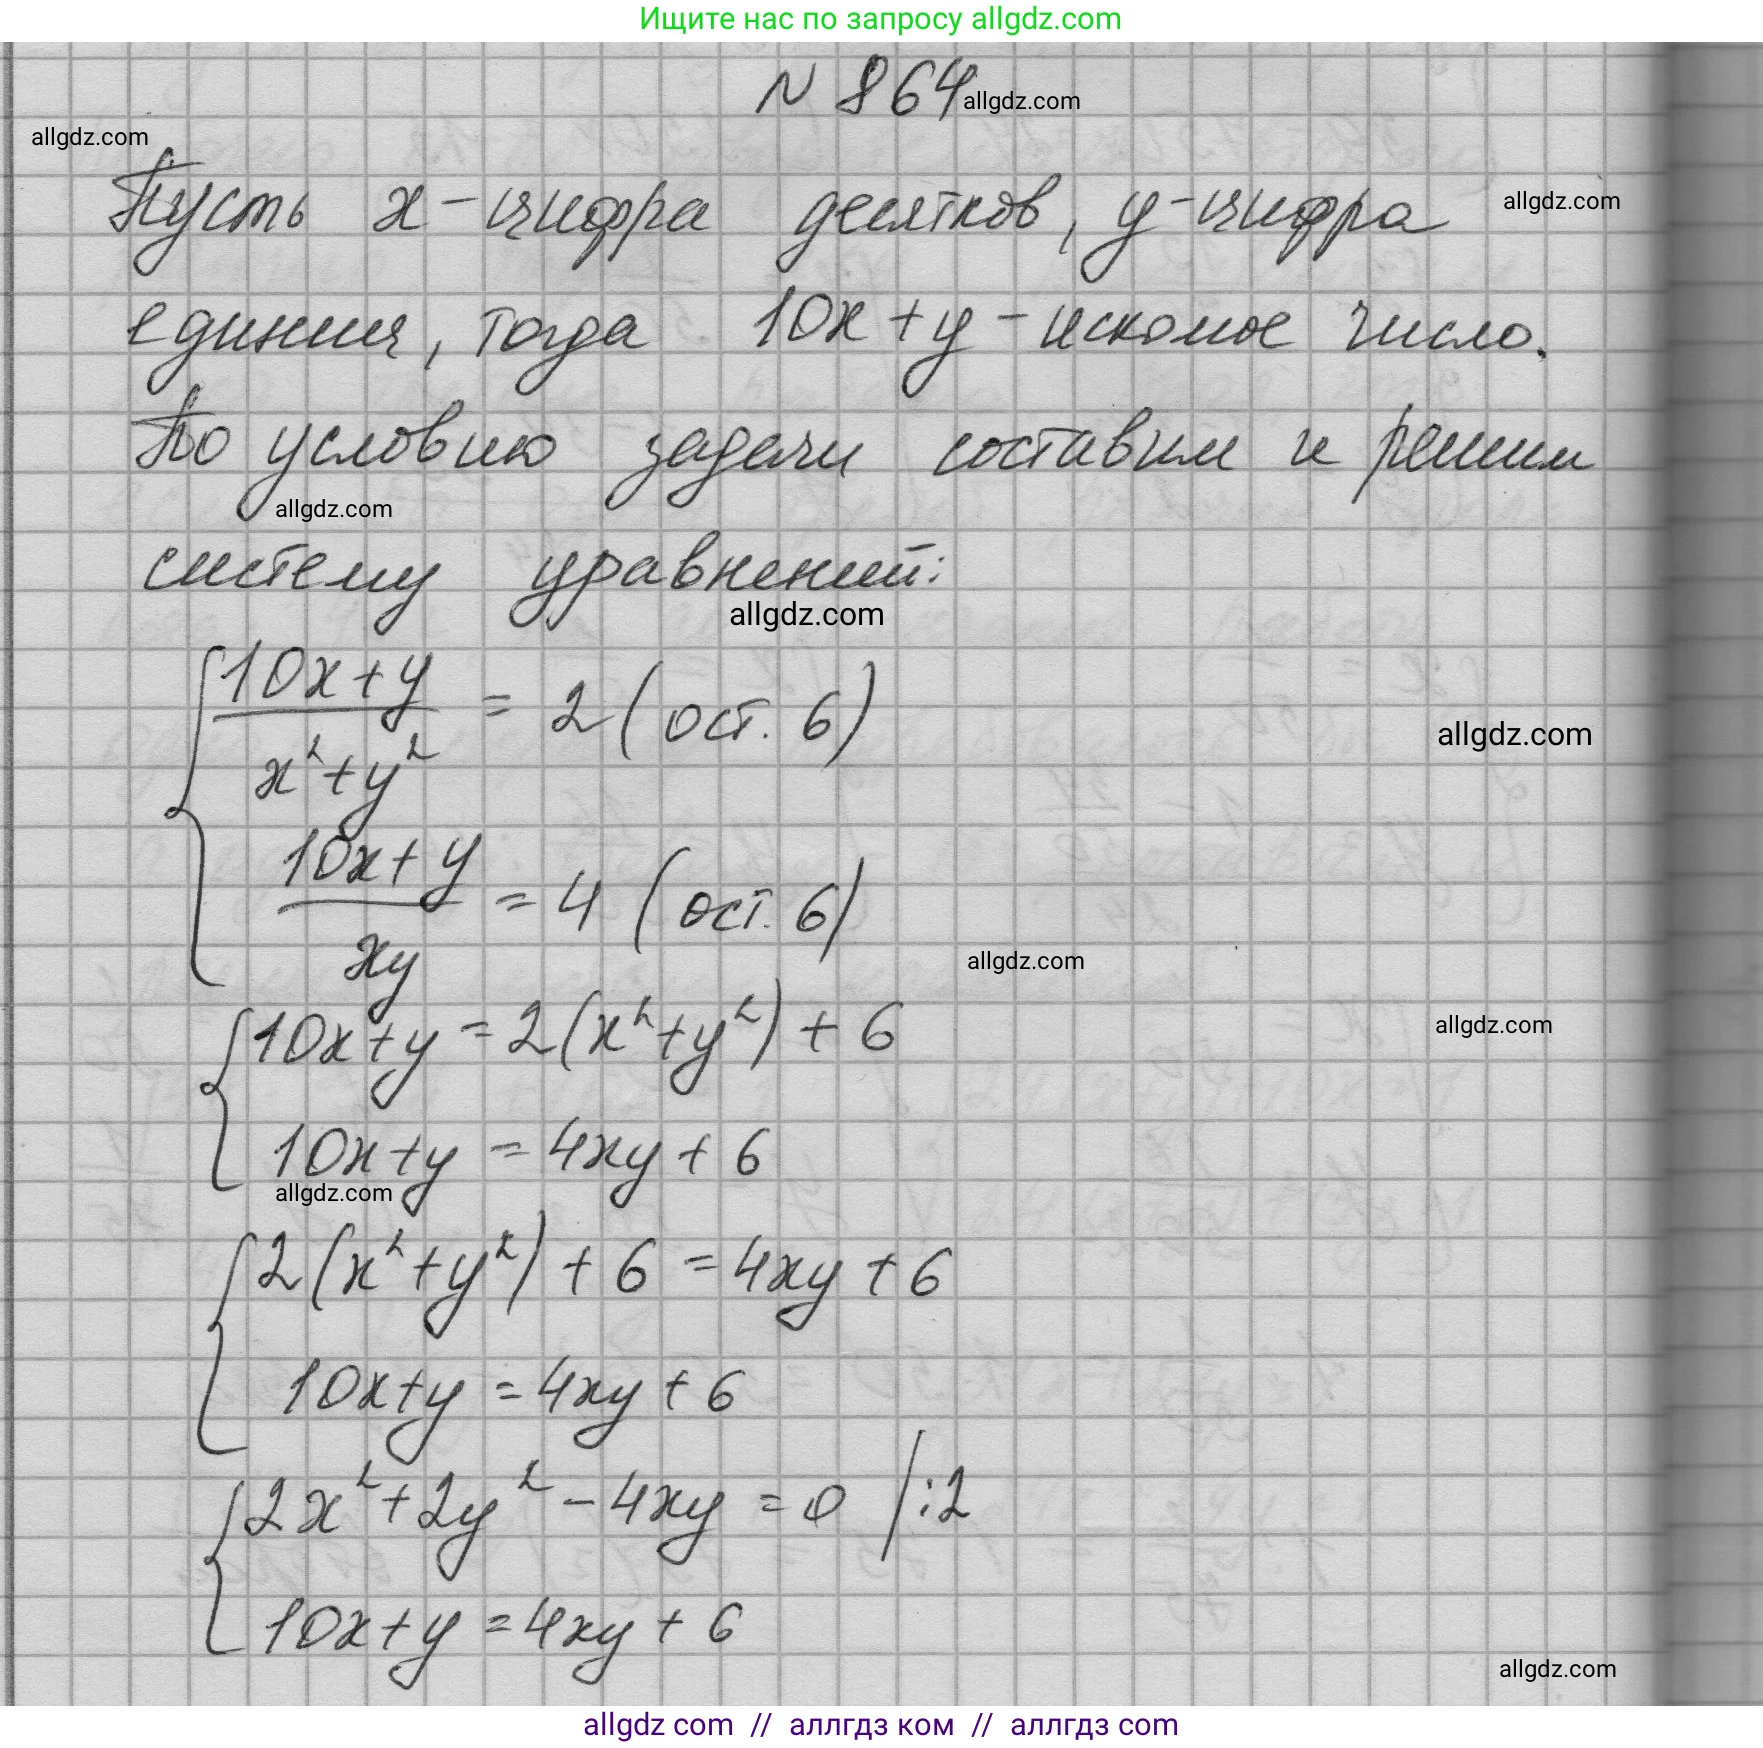 Ищите нас по запросу allgdz.com
N 864
allgdz.com
allgdz.com
Пусть x - цифра десятков, y - цифра
allgdz.com
единиц, тогда 10x + y - искомое число.
По условию задачи составим и решим
allgdz.com
систему уравнений:
allgdz.com
{ (10x + y) / (x² + y²) = 2 (ост. 6)
allgdz.com
(10x + y) / (xy) = 4 (ост. 6)
allgdz.com
{ 10x + y = 2(x² + y²) + 6
allgdz.com
10x + y = 4xy + 6
allgdz.com
{ 2(x² + y²) + 6 = 4xy + 6
10x + y = 4xy + 6
{ 2x² + 2y² - 4xy = 0 /:2
10x + y = 4xy + 6
allgdz.com
allgdz com // аллгдз ком // аллгдз com